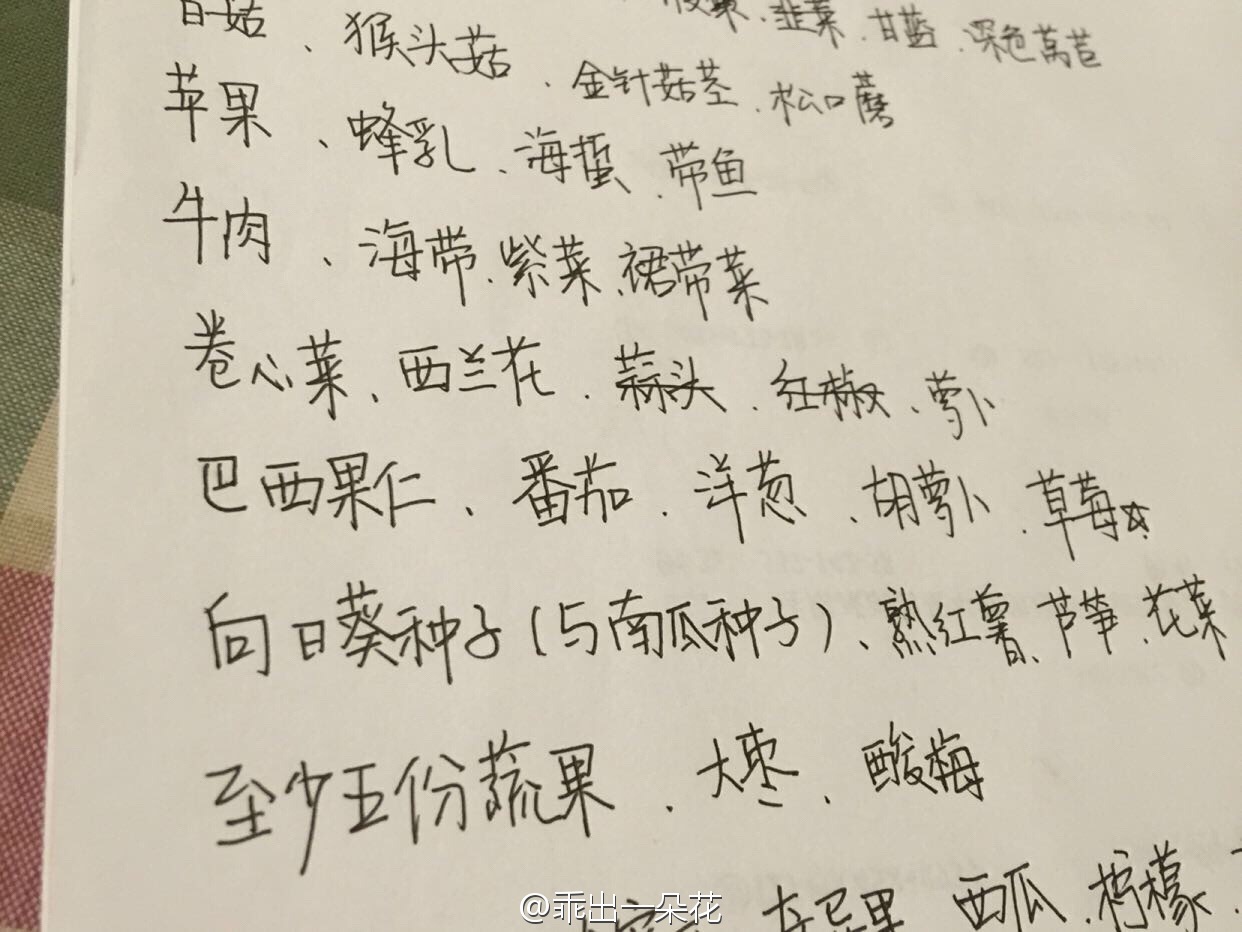 菇、猴头菇、金针菇茎、松口蘑
韭菜、甘蓝、深色莴苣
苹果、蜂乳、海蜇、带鱼
牛肉、海带、紫菜、裙带菜
卷心菜、西兰花、蒜头、红椒、萝卜
巴西果仁、番茄、洋葱、胡萝卜、草莓☆
向日葵种子(与南瓜种子)、熟红薯、芦笋、花菜
至少五份蔬果、大枣、酸梅
西瓜、柠檬、
@乖出一朵花